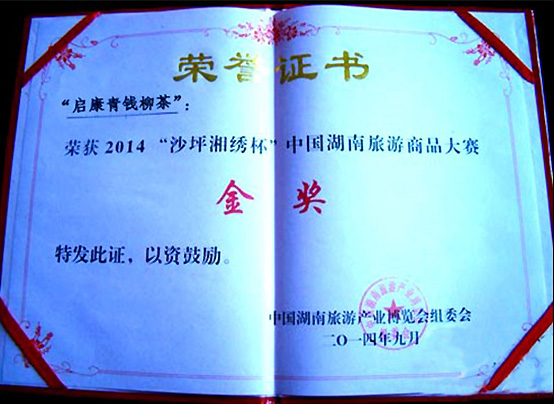 荣誉证书
“启康青钱柳茶”：
荣获2014“沙坪湘绣杯”中国湖南旅游商品大赛
金奖
特发此证，以资鼓励。
中国湖南旅游产业博览会组委会
二〇一四年九月